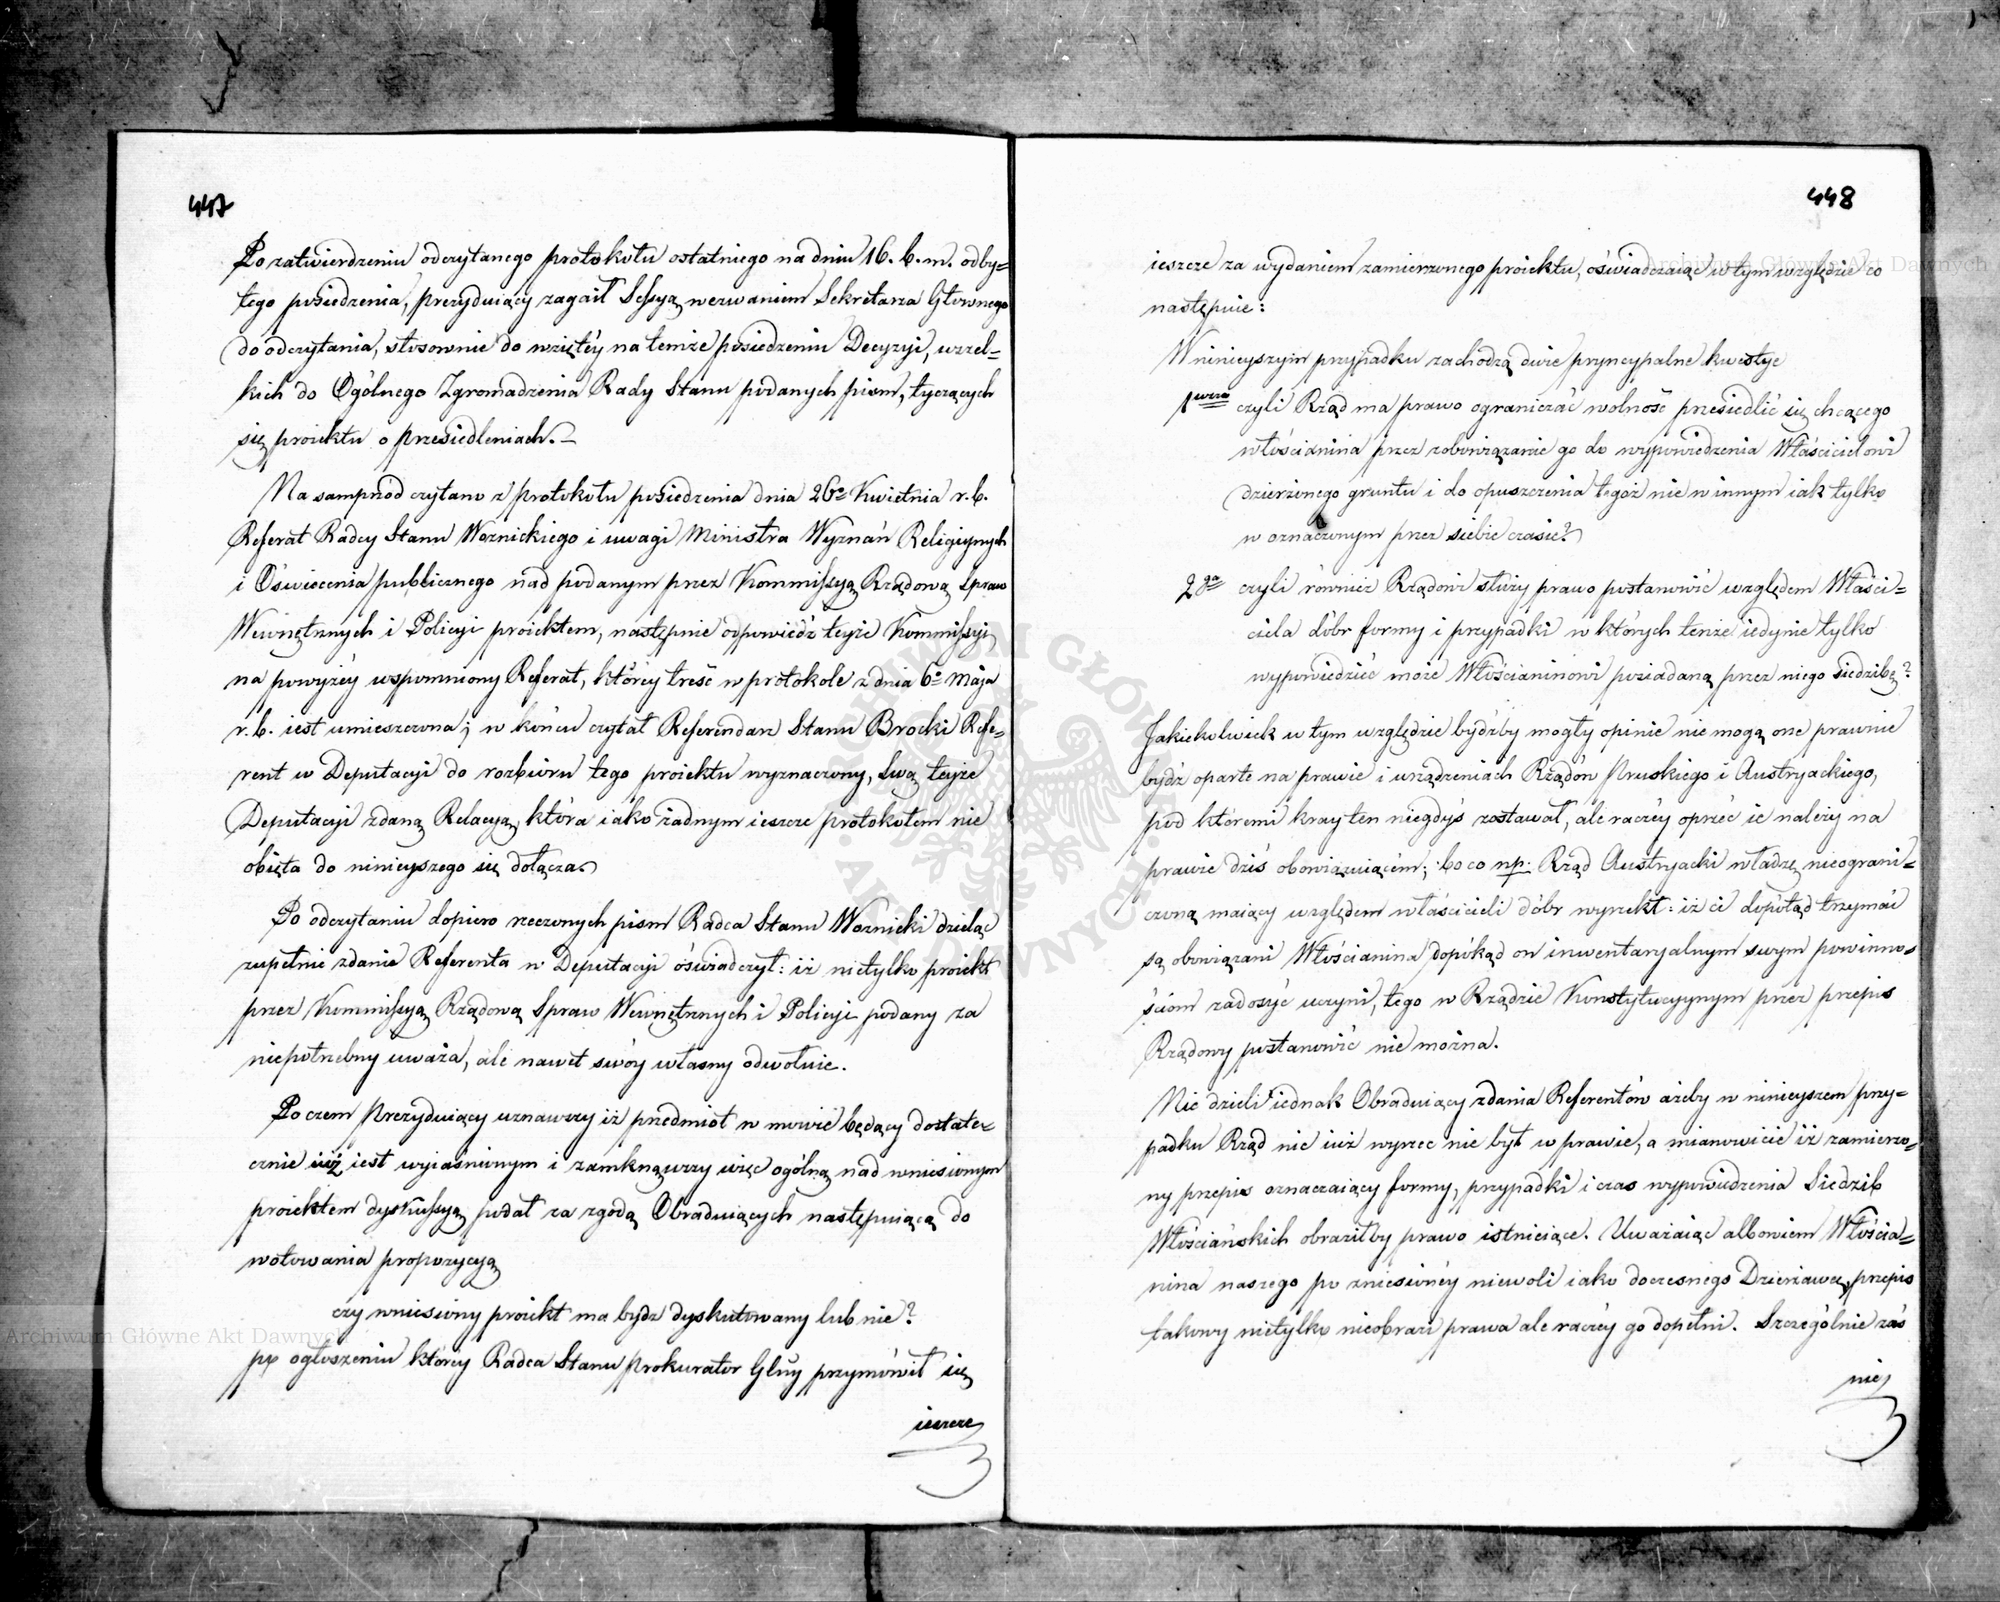 447
Po zatwierdzeniu odczytanego protokołu ostatniego na dniu 16. b. m. odby=
tego posiedzenia, prezyduiący zagaił Sessyą wezwaniem Sekretarza Głównego
do odczytania, stosownie do wziętéy na temże posiedzeniu Decyzyi, wszel=
kich do Ogólnego Zgromadzenia Rady Stanu podanych pism, tyczących
się proiektu o przesiedleniach.–
Na samprzód czytano z protokołu posiedzenia dnia 26º Kwietnia r. b.
Referat Radcy Stanu Woznickiego i uwagi Ministra Wyznań Religiynych
i Oświecenia publicznego nad podanym przez Kommissyą Rządową Spraw
Wewnętrznych i Policyi proiektem, następnie odpowiedź teyże Kommissyi,
na powyżéy wspomniony Referat, któréy treść w protokole z dnia 6º Maja
r. b. iest umieszczona; w końcu czytał Referendarz Stanu Brocki Refe=
rent w Deputacyi do rozbioru tego proiektu wyznaczony, swą teyże
Deputacyi zdaną Relacyą, która iako żadnym ieszcze protokołem nie
obięta do ninieyszego się dołącza.
Po odczytaniu dopiero rzeczonych pism Radca Stanu Woznicki dzieląc
zupełnie zdanie Referenta w Deputacyi oświadczył: iż nietylko proiekt
przez Kommissyą Rządową Spraw Wewnętrznych i Policyi podany za
niepotrzebny uważa, ale nawet swóy własny odwołuie.
Poczem Prezyduiący uznawszy iż przedmiot w mowie będący dostate=
cznie iuż iest wyiaśnionym i zamknąwszy więc ogólną nad wniesionym
proiektem dyskussyą, podał za zgodą Obraduiących następuiącą do
wotowania propozycyą
czy wniesiony proiekt ma bydź dyskutowany lub nie?
po ogłoszeniu któréy Radca Stanu Prokurator Glny przymówił się
ieszcze
448
ieszcze za wydaniem zamierzonego proiektu, oświadczaiąc w tym względzie co
następuie:
W ninieyszym przypadku zachodzą dwie pryncypalne kwestye
1wsza czyli Rząd ma prawo ograniczać wolność przesiedlić się chcącego
włościanina przez zobowiązanie go do wypowiedzenia Właścicielowi
dzierżonego gruntu i do opuszczenia tegoż nie w innym iak tylko
w oznaczonym przez siebie czasie?
2ga czyli również Rządowi służy prawo postanowić względem Właści=
ciela dóbr formy i przypadki w których tenże iedynie tylko
wypowiedzieć może Włościaninowi posiadaną przez niego siedzibę?
Jakiekolwiek w tym względzie bydźby mogły opinie nie mogą one prawnie
bydź oparte na prawie i urządzeniach Rządów Pruskiego i Austryackiego,
pod któremi kray ten niegdyś zostawał, ale raczéy oprzeć ie należy na
prawie dziś obowiązuiącém; bo co np. Rząd Austryacki władzę nieograni=
czoną maiący względem właścicieli dóbr wyrzekł: iż ci dopótąd trzymać
są obowiązani Włościanina dopókąd on inwentaryalnym swym powinno=
ściom zadosyć uczyni, tego w Rządzie Konstytucyynym przez przepis
Rządowy postanowić nie można.
Nie dzieli iednak Obraduiący zdania Referentów ażeby w ninieyszem przy=
padku Rząd nic iuż wyrzec nie był w prawie, a mianowicie iż zamierzo=
ny przepis oznaczaiący formy, przypadki i czas wypowiedzenia Siedzib
Włościańskich obraziłby prawo istnieiące. Uważaiąc albowiem Włościa=
nina naszego po zniesionéy niewoli iako doczesnego Dzierżawcę, przepis
takowy nietylko nieobrazi prawa ale raczéy go dopełni. Szczególnie zaś
nie
Archiwum Główne Akt Dawnych
Archiwum Główne Akt Dawnych
ARCHIWUM GŁÓWNE AKT DAWNYCH